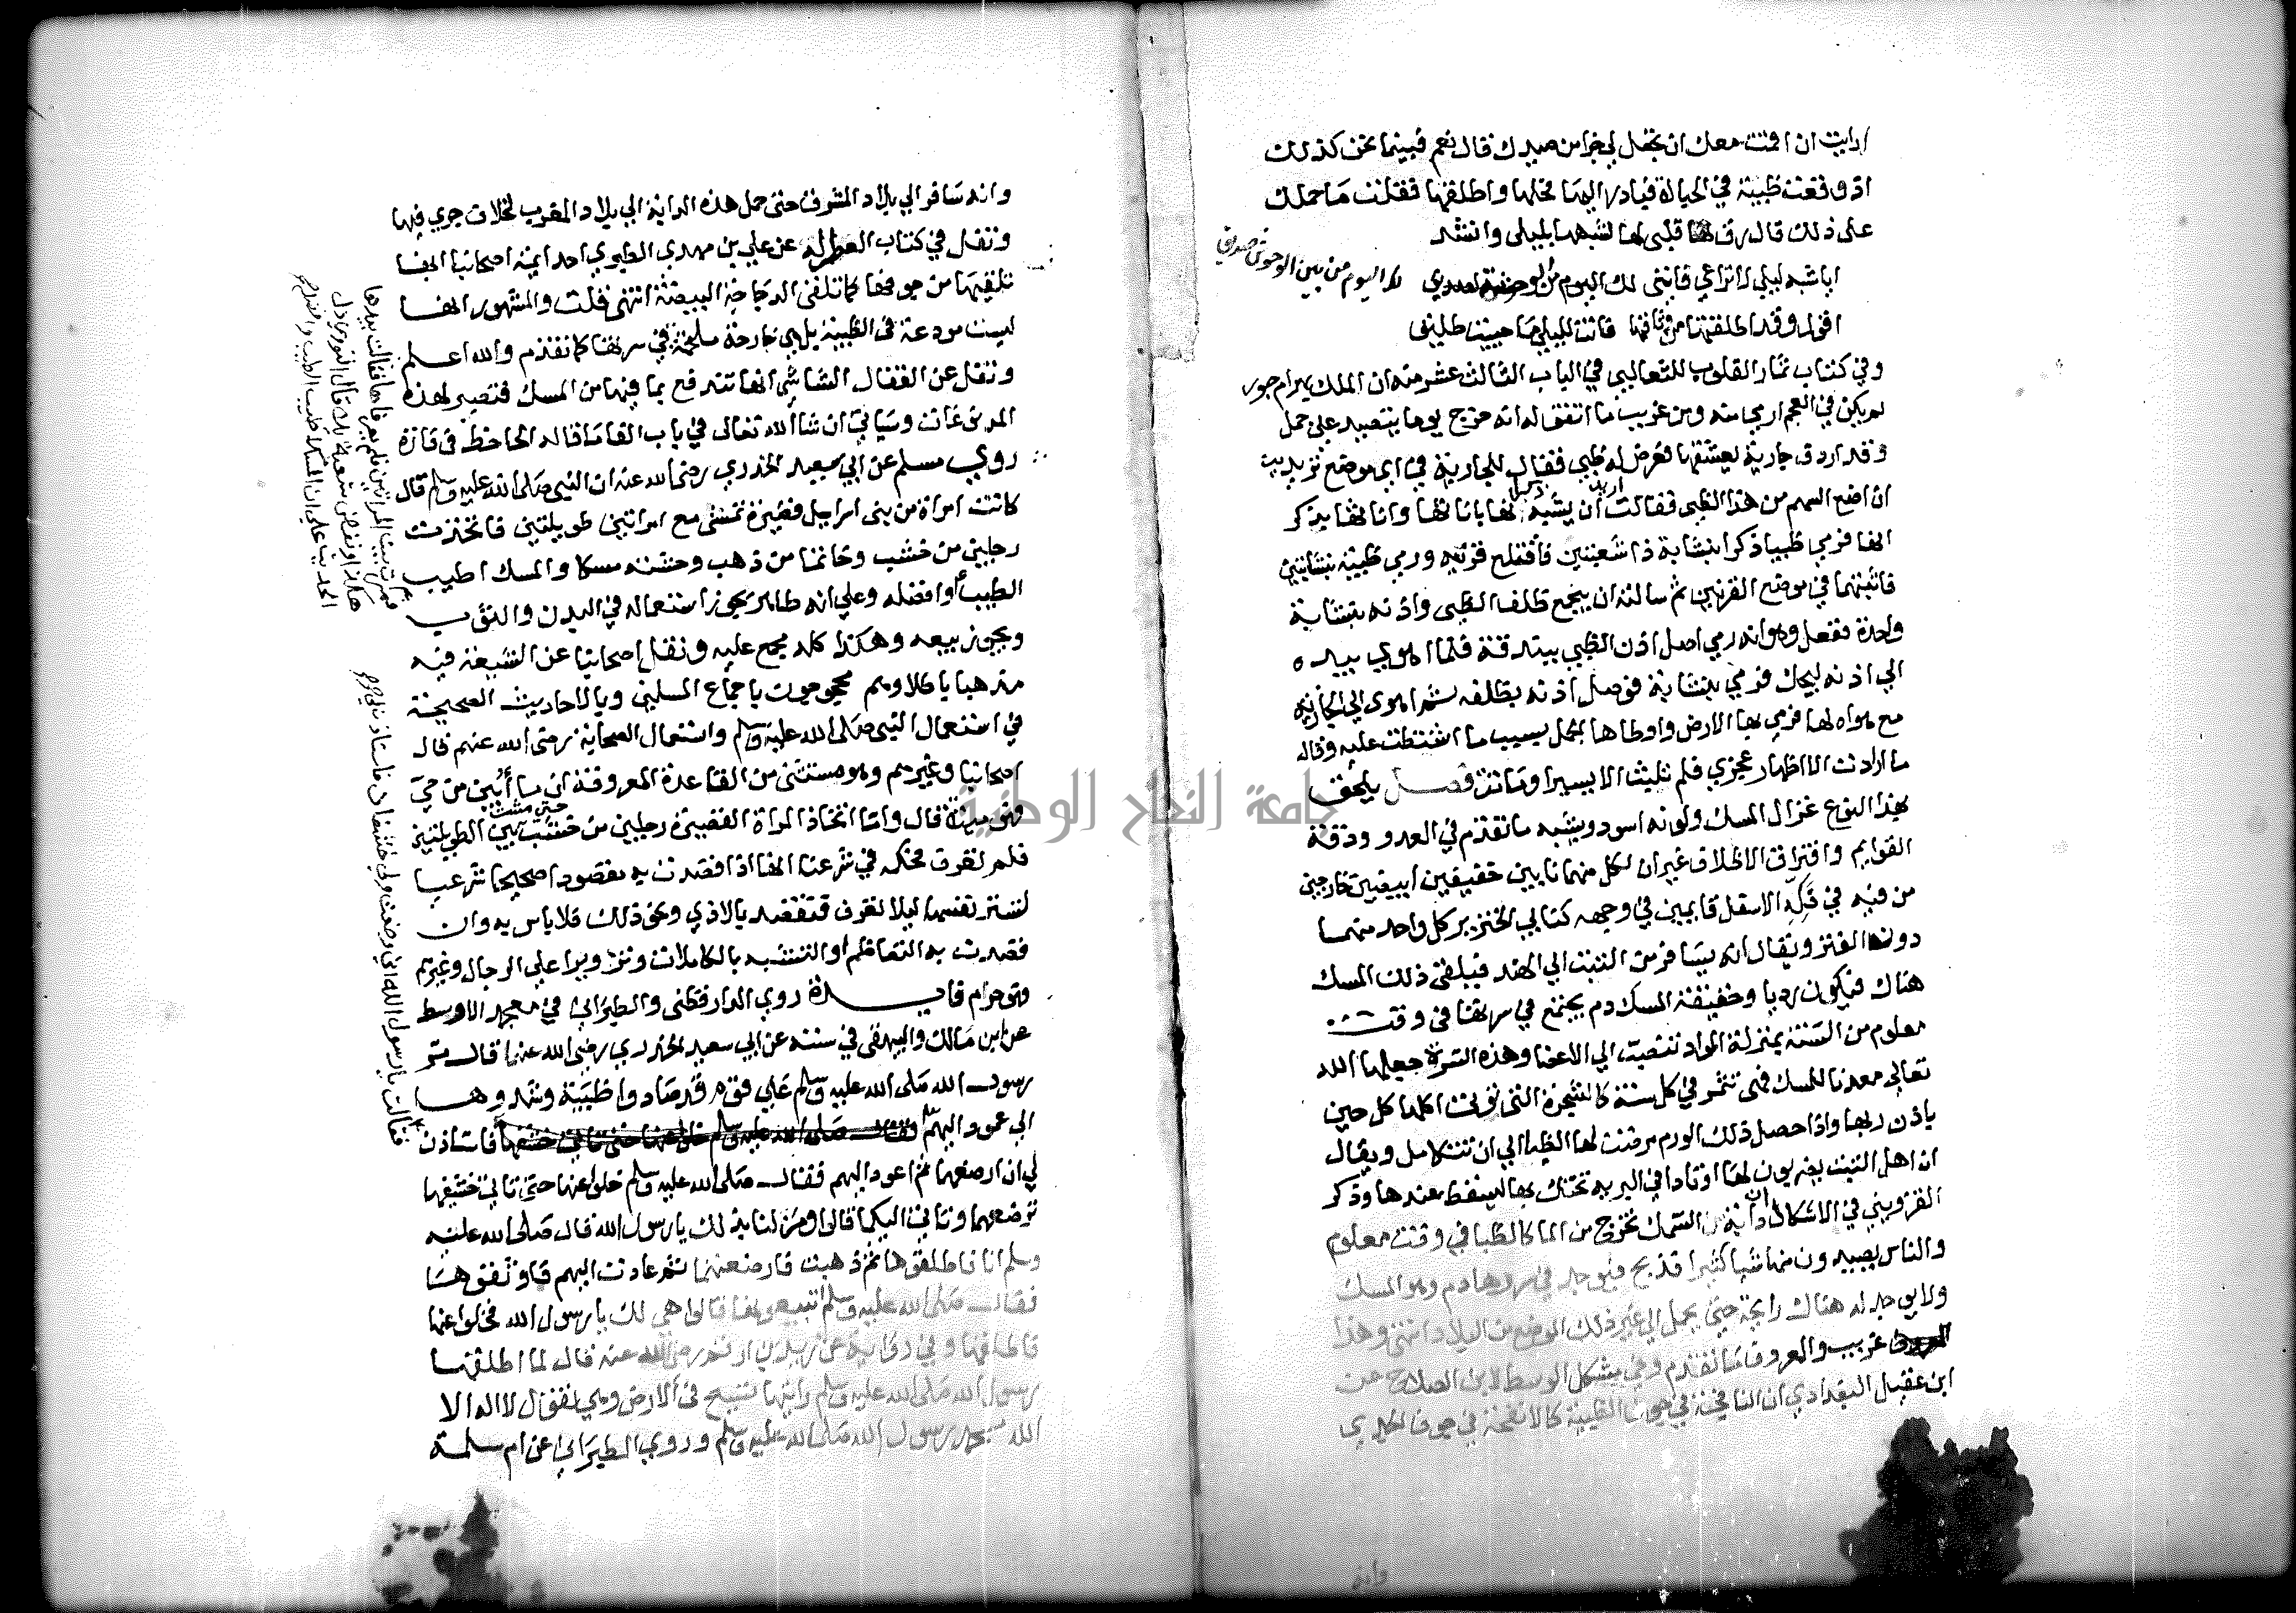 ارايت ان اقمت معك ان تجعل لي جزا من صيدك قال نعم فبينما نحن كذلك
اذ وقعت ظبية في الحبالة فبادر اليها فحلها واطلقها فقلت ما حملك
على ذلك قال رق لها قلبي لشبهها بليلى وانشد
ايا شبه ليلى لا تراعي فانني لك اليوم من
لك اليوم من بين الوحوش صديق
اقول وقد اطلقتها من وثاقها فانت لليلى ما حييت طليق
وفي كتاب ثمار القلوب للثعالبي في الباب الثالث عشر منه ان الملك بهرام جور
لم يكن في العجم ارمي منه ومن غريب ما اتفق له انه خرج يوما يتصيد على جمل
وقد اردف جارية يعشقها فعرض له ظبي فقال للجارية في اي موضع تريدين
ان اضع السهم من هذا الظبي فقالت اريد ان يشبه ذكرانها باناثها واناثها بذكر
انها فرمي ظبيا ذكرا بنشابة ذا شعبتين فاقتلع قرنيه ورمي ظبية بنشابتين
فاثبتهما في موضع القرنين ثم سالته ان يجمع ظلف الظبي واذنه بنشابة
واحدة ففعل وهو انه رمي اصل اذن الظبي ببندقة فلما اهوي بيده
الي اذنه ليحك فرمي بنشابة فوصل اذنه بظلفه ثم اهوى الى الجارية
مع هواه لها فرمي بها الارض واوطاها الجمل بسبب ما اشتطت عليه وقال
ما ارادت الا اظهار عجزي فلم تلبث الا يسيرا وماتت فصل يلحق
بهذا النوع غزال المسك ولونه اسود ويشبه ما تقدم في العدو ودقة
القوايم وافتراق الاظلاف غير ان لكل منهما نابين خفيفين ابيضين خارجين
من فيه في فكه الاسفل قايمين في وجهه كنابي الخنزير كل واحد منهما
دون الفتر ويقال انه يسافر من التبت الي الهند فيلقي ذلك المسك
هناك فيكون رديا وحقيقة المسك دم يجتمع في سرتها في وقت
معلوم من السنة بمنزلة المواد تنصب الي الاعضا وهذه السرة جعلها الله
تعالي معدنا للمسك فهي تثمر في كل سنة كالشجرة التي توتي اكلها كل حين
باذن ربها واذا حصل ذلك الورم مرضت لها الظبا الي ان تتكامل ويقال
ان اهل التبت يضربون لها اوتادا في البرية تحتك بها ليسقط عندها وذكر
القزويني في الاشكال ان دابة من السمك تخرج من الما كالظبا في وقت معلوم
والناس يصيدون منها شيا كثيرا فتذبح فيوجد في سررها دم وهو المسك
ولا يوجد له هناك رايحة حتي يحمل الي غير ذلك الموضع من البلاد انتهي وهذا
غريب والمعروف ما تقدم وفي مشكل الوسيط لابن الصلاح عن
ابن عقيل البغدادي ان النافجة في جوف الظبية كالانفحة في جوف الجدي
وانه
وانه سافر الي بلاد المشرق حتى حمل هذه الدابة الي بلاد المغرب لخلاف جري فيها
ونقل في كتاب العطر له عن علي بن مهدي الطبري احد ايمة اصحابنا انها
تلقيها من جوفها كما تلقي الدجاجة البيضة انتهى قلت والمشهور انها
ليست مودعة في الظبية بل هي خارجة ملتحمة في سرتها كما تقدم والله اعلم
ونقل عن القفال الشاشي انها تندبغ بما فيها من المسك فتصير لهذه
المدبوغات وسياتي ان شا الله تعالى في باب الفا ما قاله الجاحظ في فارة
روي مسلم عن ابي سعيد الخدري رضي الله عنه ان النبي صلى الله عليه وسلم قال
كانت امراة من بني اسرايل قصيرة تمشي مع امراتين طويلتين فاتخذت
رجلين من خشب وخاتما من ذهب وحشته مسكا والمسك اطيب
الطيب او افضله وعلي انه طاهر يجوز استعماله في البدن والثوب
ويجوز بيعه وهكذا كله مجمع عليه ونقل اصحابنا عن الشيعة فيه
مذهبا باطلا وهم محجوجون باجماع المسلمين وبالاحاديث الصحيحة
في استعمال النبي صلى الله عليه وسلم واستعمال الصحابة رضي الله عنهم قال
اصحابنا وغيرهم وهو مستثني من القاعدة المعروفة ان ما أبين من حي
فهو ميتة قال واما اتخاذ المراة القصيرة رجلين من خشب حتى مشت بين الطويلتين
فلم تعرف فحكمه في شرعنا انها اذا قصدت به مقصودا صحيحا شرعيا
لتستر نفسها ليلا تعرف فتقصد بالاذي ونحو ذلك فلا باس به وان
قصدت به التعاظم او التشبه بالكاملات وتزويرا علي الرجال وغيرهم
فهو حرام فايدة روي الدارقطني والطبراني في معجمه الاوسط
عن ابن مالك والبيهقي في سننه عن ابي سعيد الخدري رضي الله عنهما قال مر
رسول الله صلى الله عليه وسلم علي قوم قد صادوا ظبية وشدوها
الي عمود اليهم فقال صلى الله عليه وسلم خلوا عنها حتى تاتي خشفها فاستاذن
لي ان ارضعهما ثم اعود اليهم فقال صلى الله عليه وسلم خلوا عنها حتى تاتي خشفيها
ترضعهما وتاتي اليكم قالوا ومن لنا بذلك يا رسول الله قال صلى الله عليه
وسلم انا فاطلقوها ثم ذهبت فارضعتهما ثم عادت اليهم فاوثقوها
فقال صلى الله عليه وسلم اتبيعونها قالوا هي لك يا رسول الله فخلوا عنها
فاطلقها وفي رواية عن زيد بن ارقم رضي الله عنه قال لما اطلقها
رسول الله صلى الله عليه وسلم رايتها تسبح في الارض وهي تقول لا اله الا
الله محمد رسول الله صلى الله عليه وسلم وروي الطبراني عن ام سلمة
فمرت بين المراتين فلم يعرفاها فقالت بيدها
هكذا ونفض شعبة يده قال النووي دل
الحديث على ان المسك اطيب الطيب وافضله
فقالت يا رسول الله اني وضعت ولي خشفان فاستاذن لي
جامعة النجاح الوطنية